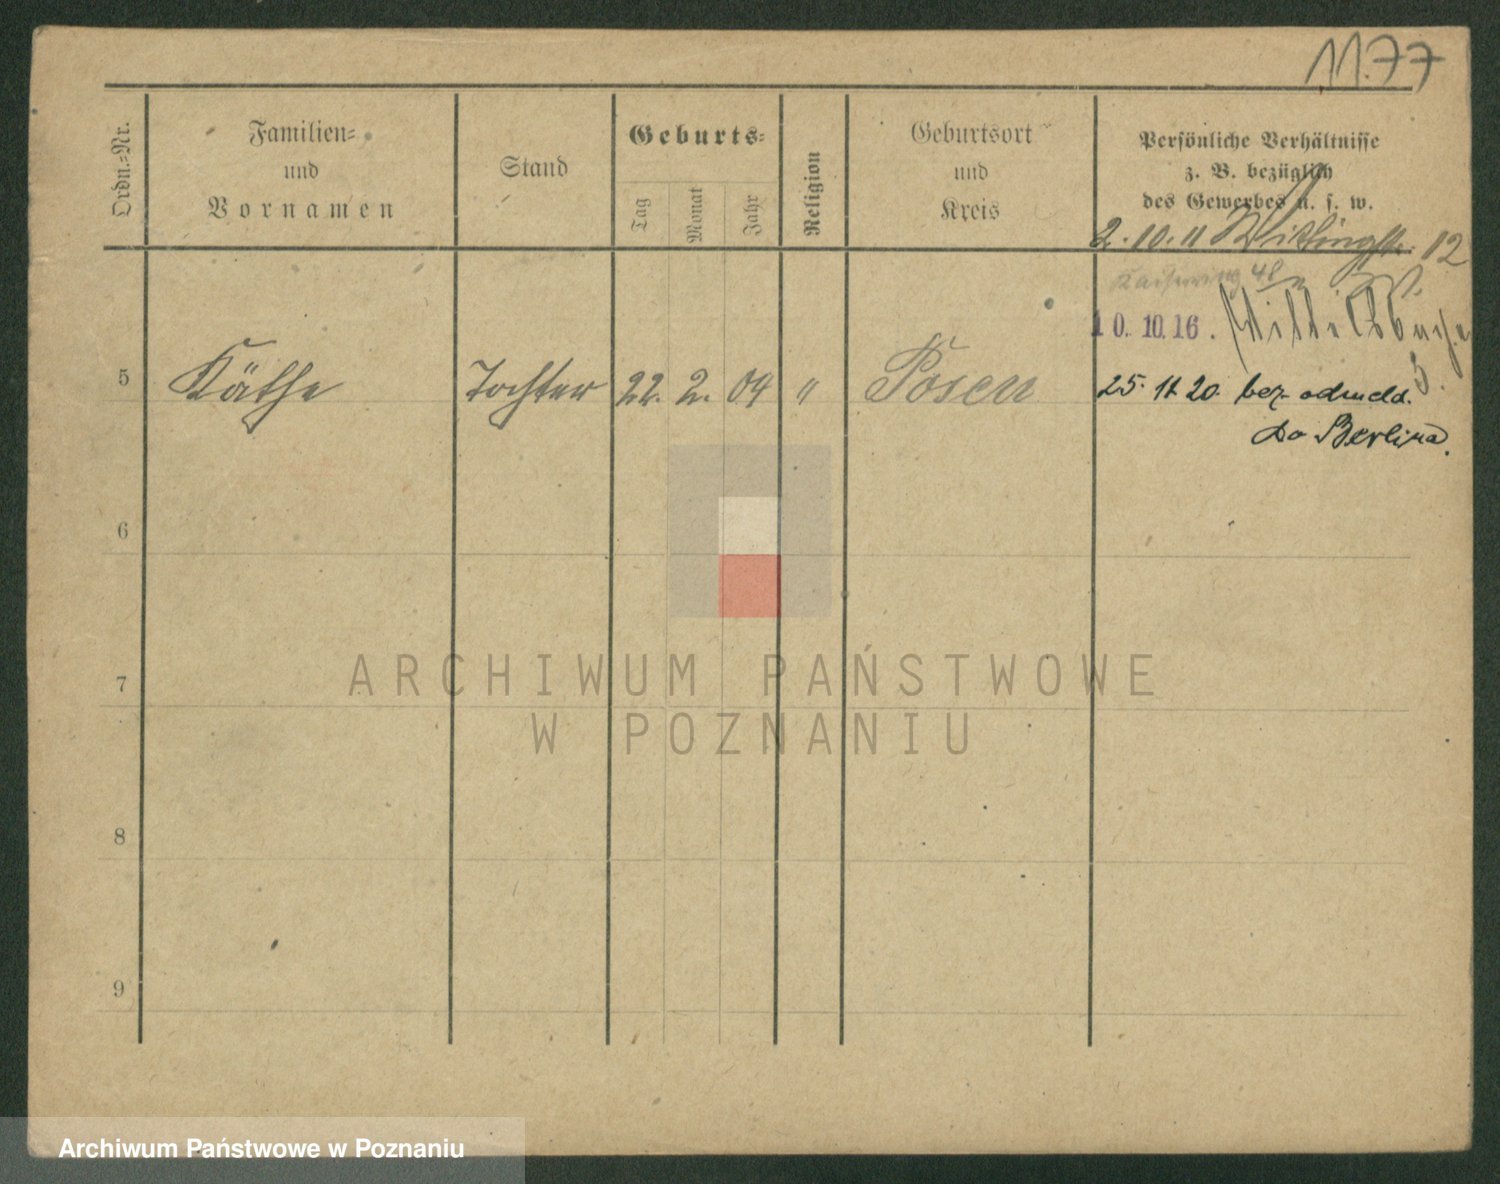 1177
Ordn.-Nr.
Familien-
und
Vornamen
Stand
Geburts-
Tag
Monat
Jahr
Religion
Geburtsort
und
Kreis
Persönliche Verhältnisse
z. B. bezüglich
des Gewerbes u. s. w.
2. 10. 11 12
Kaiserring 48
10. 10. 16.
5 Käthe Tochter 22. 2. 04 " Posen 25. 11 20. bez. odmeld.
do Berlina.
6
7
8
9
ARCHIWUM PAŃSTWOWE
W POZNANIU
Archiwum Państwowe w Poznaniu